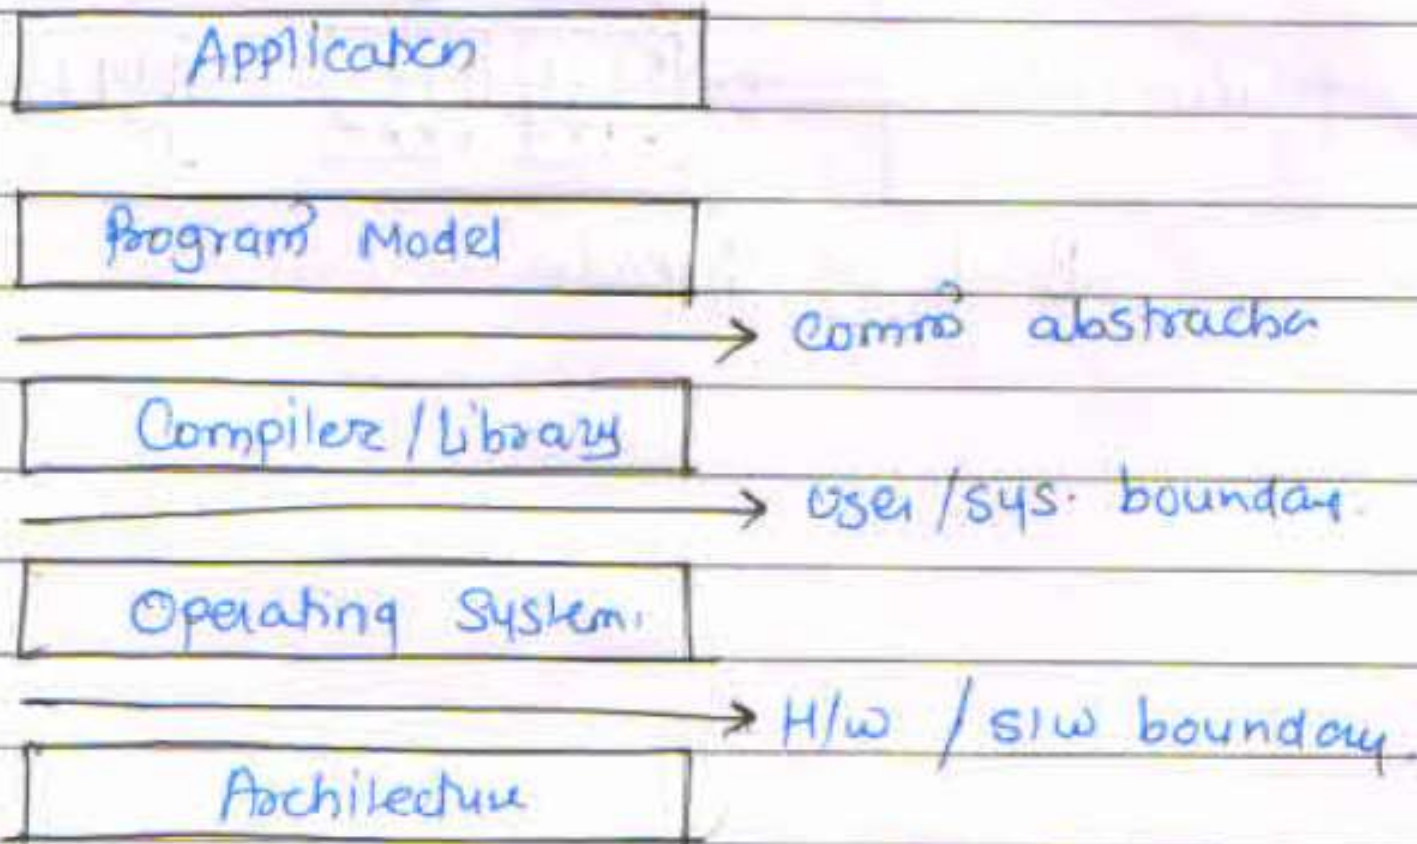 Application
Program Model
Commⁿ abstraction
Compiler / Library
User / sys. boundary.
Operating System.
H/w / s/w boundary.
Architecture